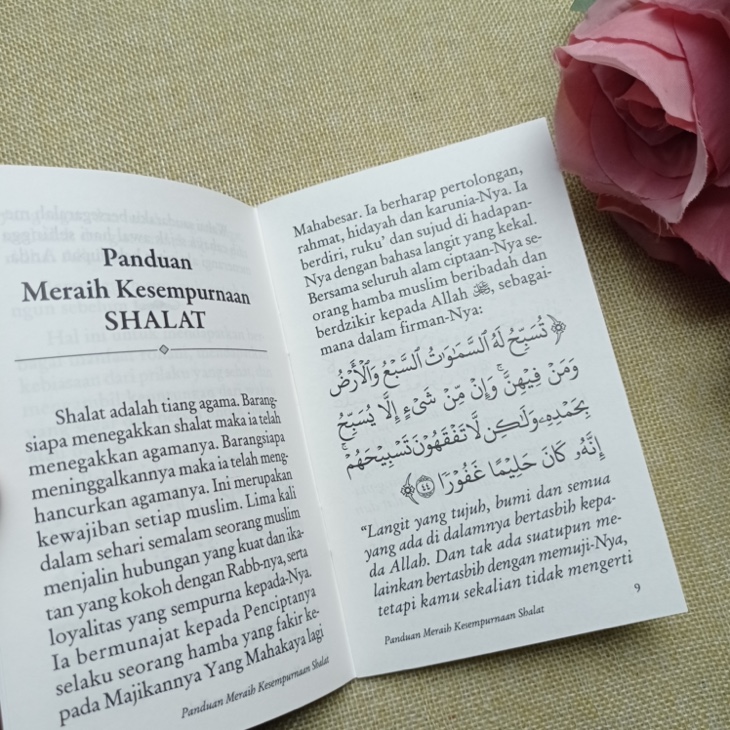 Panduan
Meraih Kesempurnaan
SHALAT
Shalat adalah tiang agama. Barang-
siapa menegakkan shalat maka ia telah
menegakkan agamanya. Barangsiapa
meninggalkannya maka ia telah meng-
hancurkan agamanya. Ini merupakan
kewajiban setiap muslim. Lima kali
dalam sehari semalam seorang muslim
menjalin hubungan yang kuat dan ika-
tan yang kokoh dengan Rabb-nya, serta
loyalitas yang sempurna kepada-Nya.
Ia bermunajat kepada Penciptanya
selaku seorang hamba yang fakir ke-
pada Majikannya Yang Mahakaya lagi
Panduan Meraih Kesempurnaan Shalat
Mahabesar. Ia berharap pertolongan,
rahmat, hidayah dan karunia-Nya. Ia
berdiri, ruku’ dan sujud di hadapan-
Nya dengan bahasa langit yang kekal.
Bersama seluruh alam ciptaan-Nya se-
orang hamba muslim beribadah dan
berdzikir kepada Allah ﷻ, sebagai-
mana dalam firman-Nya:
﴿ تُسَبِّحُ لَهُ ٱلسَّمَـٰوَٰتُ ٱلسَّبْعُ وَٱلْأَرْضُ
وَمَن فِيهِنَّ ۚ وَإِن مِّن شَىْءٍ إِلَّا يُسَبِّحُ
بِحَمْدِهِۦ وَلَـٰكِن لَّا تَفْقَهُونَ تَسْبِيحَهُمْ ۗ
إِنَّهُۥ كَانَ حَلِيمًا غَفُورًا ٤٤ ﴾
“Langit yang tujuh, bumi dan semua
yang ada di dalamnya bertasbih kepa-
da Allah. Dan tak ada suatupun me-
lainkan bertasbih dengan memuji-Nya,
tetapi kamu sekalian tidak mengerti
9
Panduan Meraih Kesempurnaan Shalat